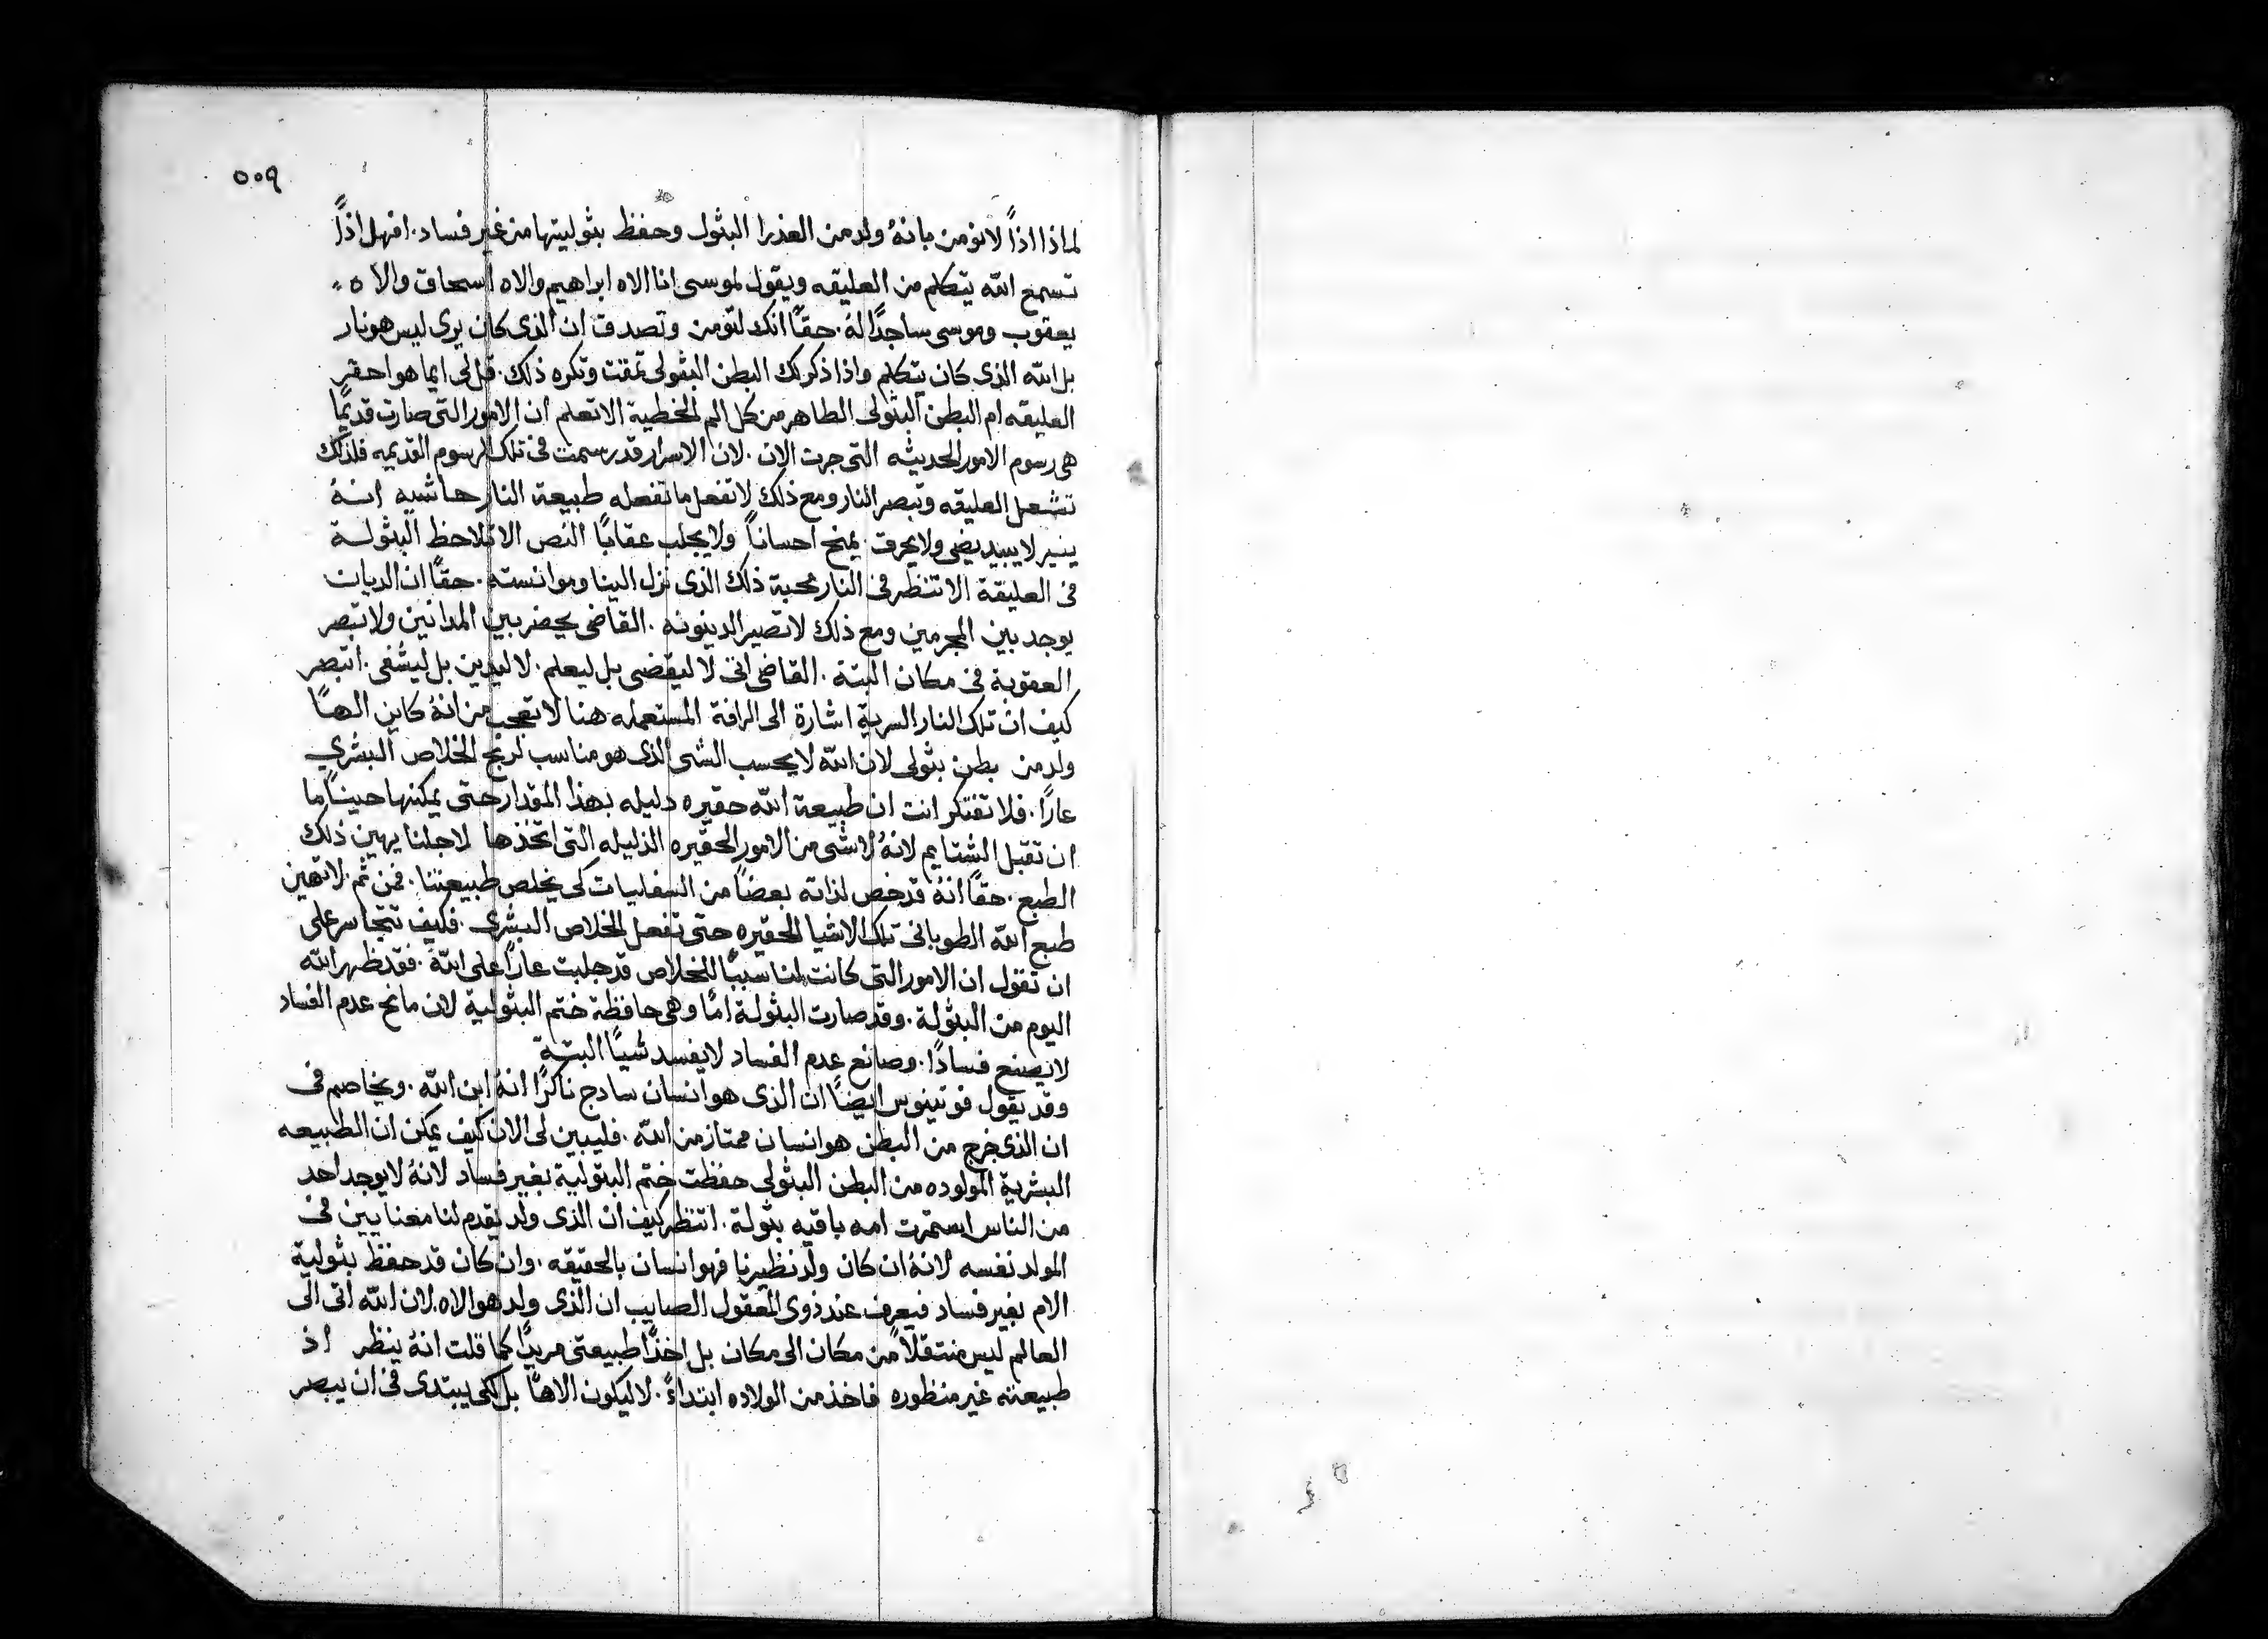 ٥٠٩
لماذا اذاً لا نومن بانهُ ولد من العذرا البثول وحفظ بثوليتها من غير فساد. افهل اذاً
تسمع الله يتكلم من العليقه ويقول لموسى انا الاه ابراهيم والاه اسحاق والاه
يعقوب وموسى ساجدًا لهُ. حقًا انك لتومن وتصدق ان الذى كان يرى ليس هو نار
بل الله الذى كان يتكلم واذا ذكر لك البطن البثولى تمقت وتكره ذلك. قل لى ايما هو احقر
العليقه ام البطن البثولى الطاهر من كل الم الخطية الا تعلم ان الامور التى صارت قديمًا
هى رسوم الامور الحديثه التى جرت الان. لان الاسرار قد رسمت فى تلك الرسوم القديمه فلذلك
تشعل العليقه وتبصر النار ومع ذلك لا تفعل ما تفعله طبيعة النار حاشيه انهُ
ينير لا يبيد يضى ولا يحرق. يمنح احساناً ولا يجلب عقابًا النص الا تلاحظ البثولة
فى العليقة الا تنظر فى النار محبة ذلك الذى نزل الينا وموانسته. حقًا ان الديان
يوجد بين المجرمين ومع ذلك لا تصير الدينونه. القاضى يحضر بين المدانين ولا تبصر
العقوبة فى مكان البتة. القاضى اتى لا ليقضى بل ليعلم. لا ليدين بل ليشفى. اتبصر
كيف ان تلك النار السرية اشارة الى الرافة المستعمله هنا لا تعجب من انهُ كاين الهًا
ولد من بطن بثولى لان الله لا يحسب الشى الذى هو مناسب لربح الخلاص البشري
عارًا. فلا تفتكر انت ان طبيعة الله حقيره دليله بهذا المقدار حتى يمكنها حينًا ما
ان تقبل الشتايم لانهُ لا شى من الامور الحقيره الذليله التى اتخذها لاجلنا يهين ذلك
الطبع. حقًا انهُ قد خص لذاته بعضًا من السفليات كى يخلص طبيعتنا. فمن ثم لا تهين
طبع الله الطوبانى تلك الاشيا الحقيره حتى تفعل الخلاص البشرى. فكيف تتجاسر على
ان تقول ان الامور التى كانت لنا سببًا للخلاص قد جلبت عارًا على الله. فقد ظهر الله
اليوم من البثولة. وقد صارت البثولة امًا وهى حافظة ختم البثولية لان مانح عدم الفساد
لا يصنع فسادًا. وصانع عدم الفساد لا يفسد شيًا البتة
وقد يقول فوتينوس ايضًا ان الذى هو انسان سادج ناكرًا انهُ ابن الله. ويخاصم فى
ان الذى خرج من البطن هو انسان ممتاز من الله. فليبين لى الان كيف يمكن ان الطبيعه
البشرية المولوده من البطن البثولى حفظت ختم البتولية بغير فساد لانهُ لا يوجد احد
من الناس استمرت امه باقيه بتولة. انتظر كيف ان الذى ولد يقدم لنا معنايين فى
المولد نفسه لانهُ ان كان ولد نظيرنا فهو انسان بالحقيقه. وان كان قد حفظ بثولية
الام بغير فساد فيعرف عند ذوى العقول الصايب ان الذى ولد هو الاه. لان الله اتى الى
العالم ليس منتقلاً من مكان الى مكان بل اخذًا طبيعتى مريدًا كما قلت انهُ ينظر اذ
طبيعته غير منظوره فاخذ من الولاده ابتداءً. لا ليكون الاهًا بل لكى يبتدى فى ان يبصر